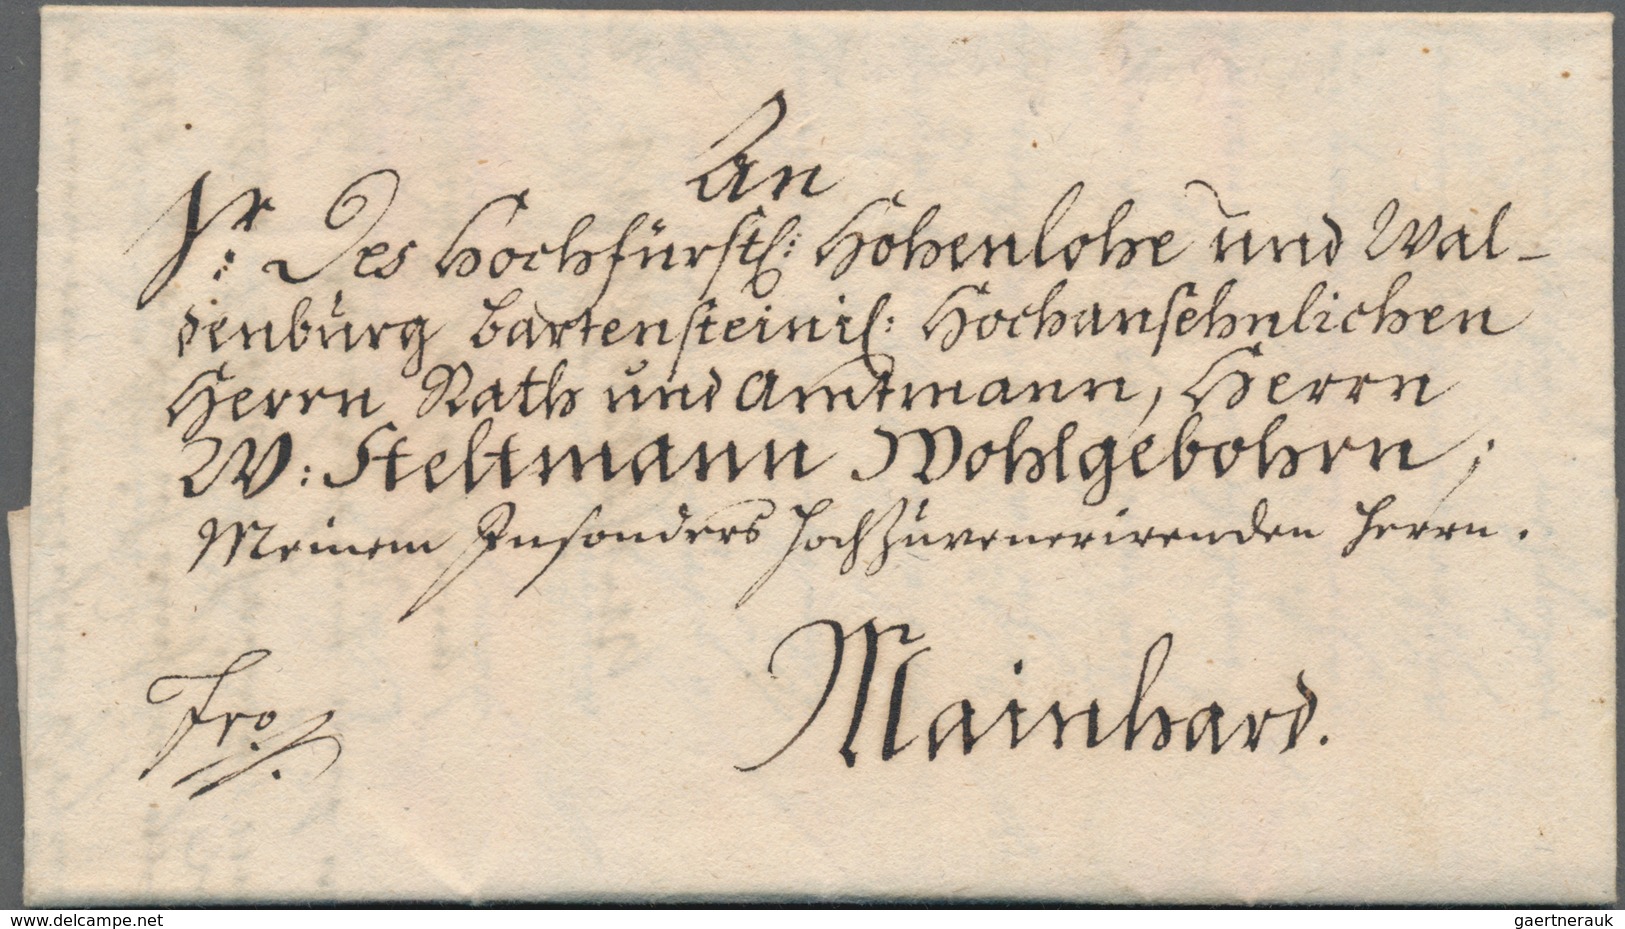 An
Des Hochfürstl: Hohenlohe und Wal-
denburg Bartensteinis: Hochansehnlichen
Herrn Rath und Amtmann, Herrn
W: Steltmann Wohlgebohrn;
Meinem Insonders HochZuvenerirenden Herrn.
Mainhard.
Fro
www.delcampe.net
gaertnerauk